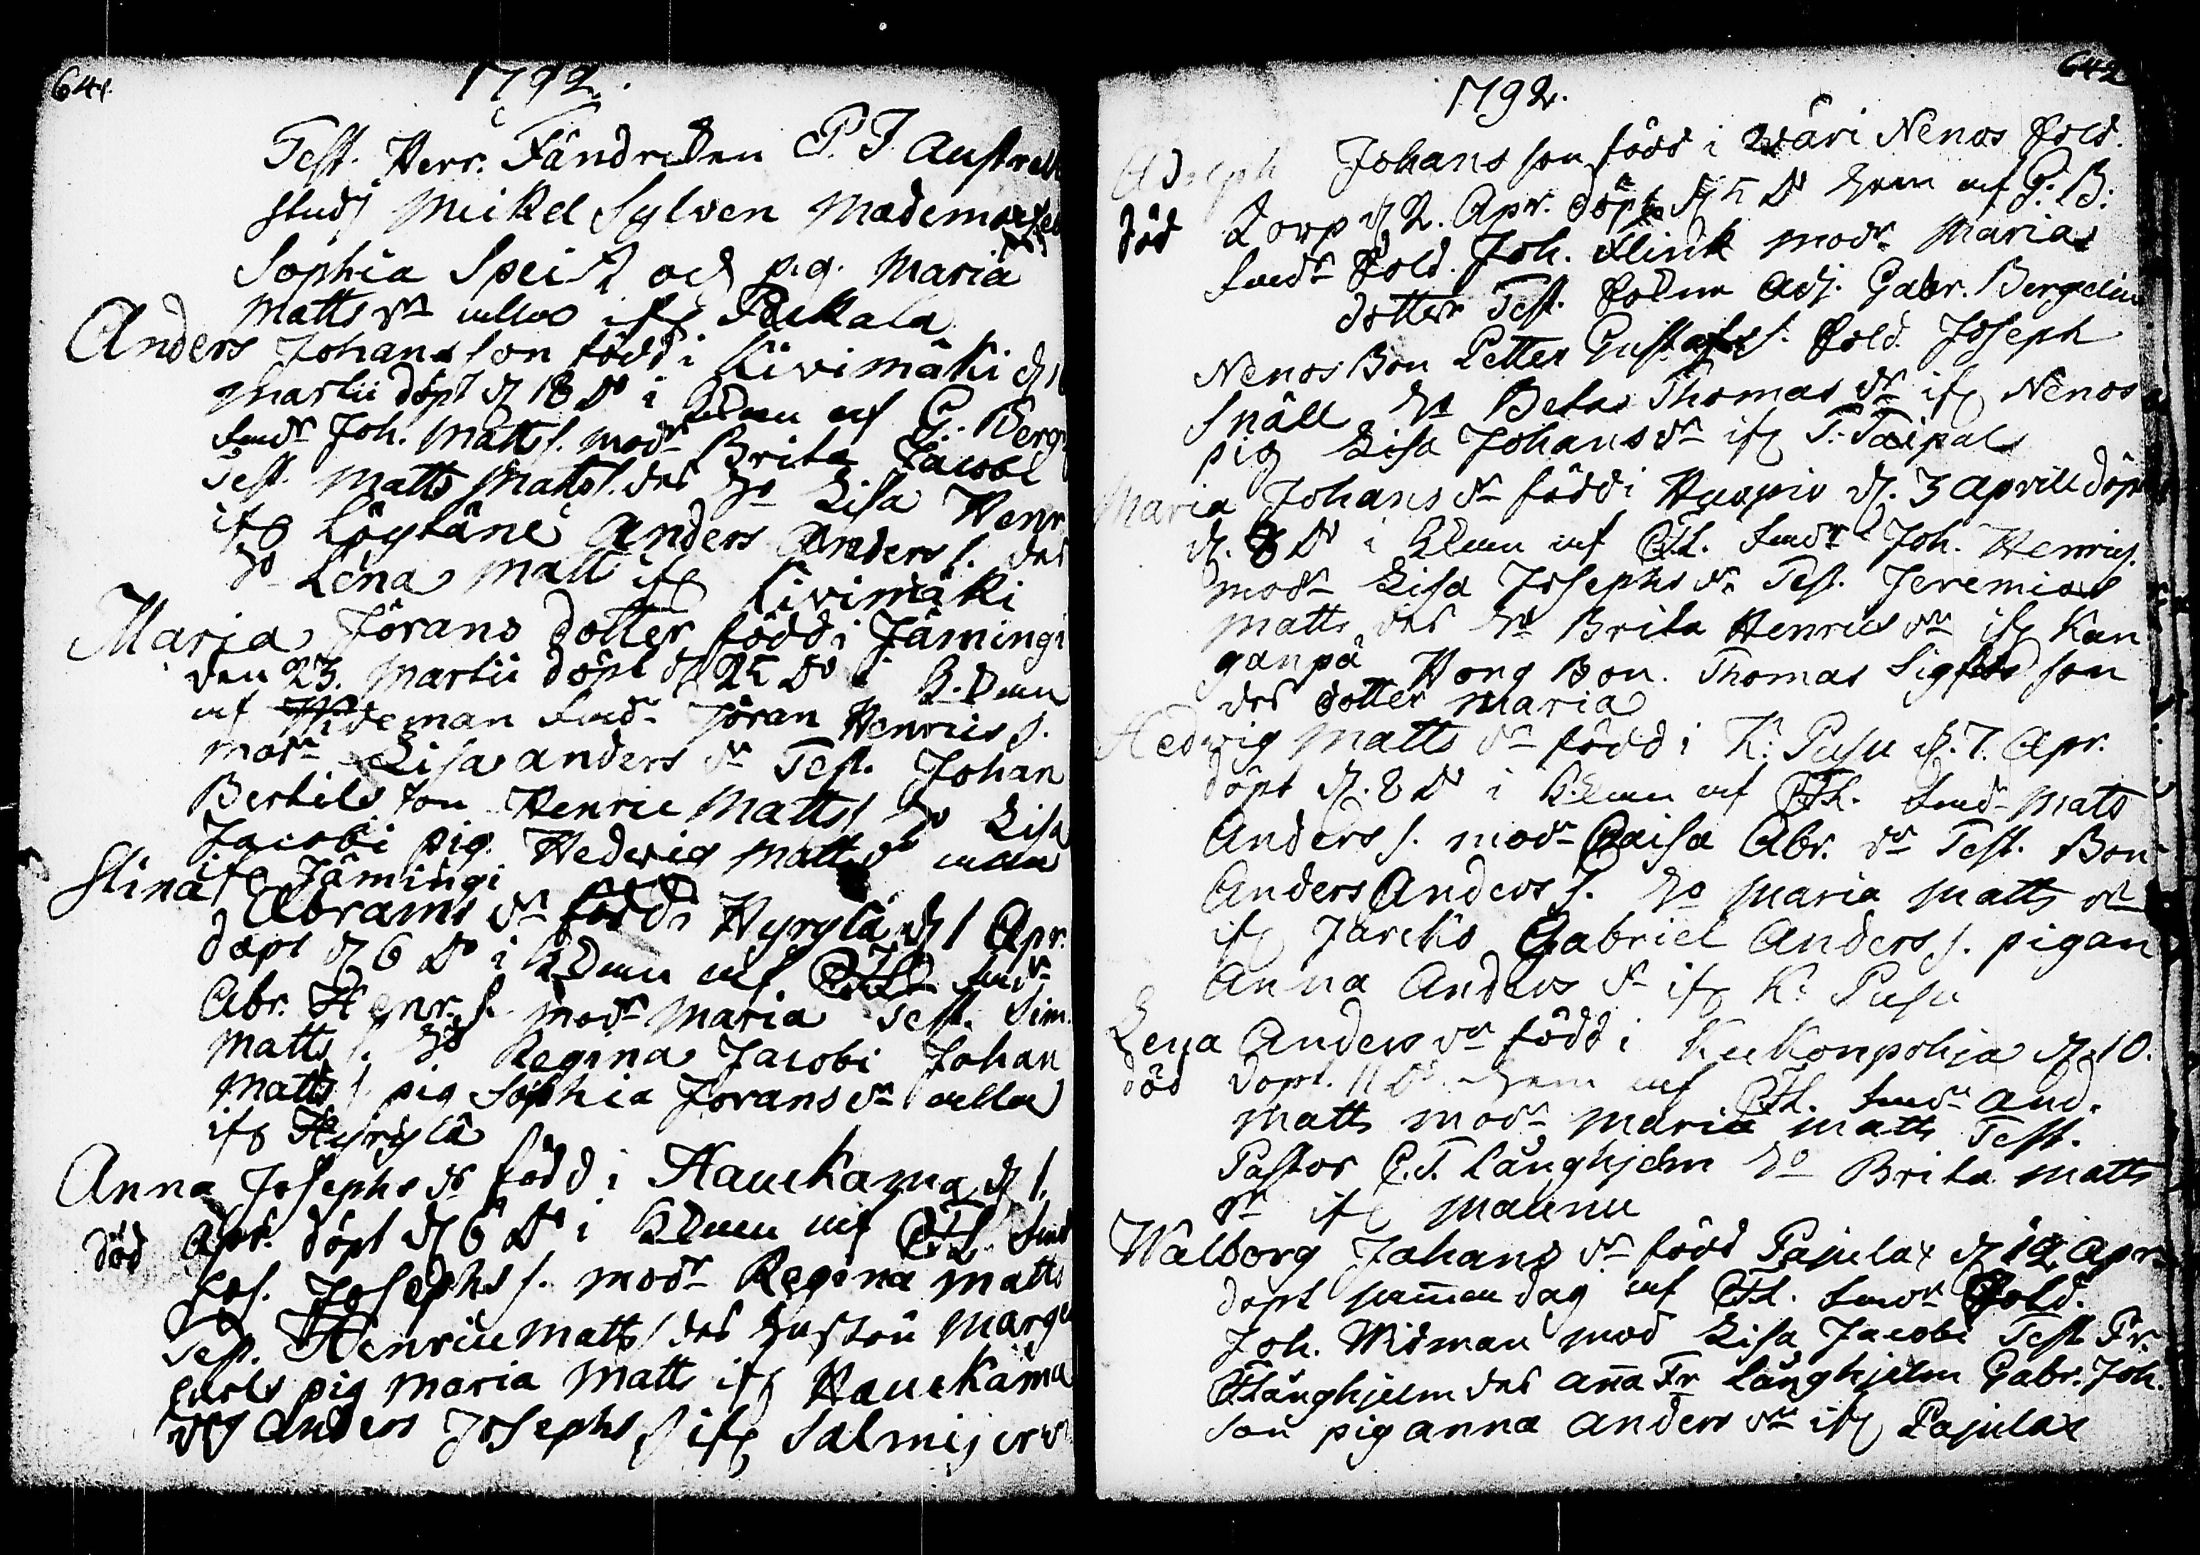 641.
1792.
Test. Herr. Fändricken P. J. Austrell
Studj Mickel Sylven Mademoisel
Sophia Speis och pig. Maria
Matts dr alla ifr Pockala
Anders Johansson född i Kivimäki d
Martii döpt d 18 do i Kkan af G. Berg
Fadr Joh. Matts s. modr Brita Jacobi
Test. Matts Matts s. des ho Lisa Henr
ifr Löytäne Anders Anders s. des
ho Lena Matts ifr Kivimäki
Maria Jörans dotter född i Jämingi
den 23. Martii döpt d 25 do i K.kan
af Wideman Fadr Jöran Henrics s.
modr Lisa Anders dr Test. Johan
Bertils son Henric Matts s ho Lisa
Jacobi pig. Hedvig Matts dr alla
ifr Jämingi
Stina Abrams dr född i Hyrylä d 1 Apr.
döpt d 6 do i Kkan af Fadr
Abr. Henr. s. modr Maria Test. Sim.
Matts s. ho Regina Jacobi Johan
Matts s pig Sophia Jörans dr alla
ifr Hyrylä
Anna Josephs dr född i Haukama d 1.
död Apr. döpt d 6 do i Kkan af Fadr
Jos. Josephs s. modr Regina Matts
Test. Henric Matts s des hustru Marg
Carls pig Maria Matts ifr Haukama
dg Anders Josephs s ifr Salmijerv
642
1792.
Adolph Johans son född i Wäri Nenos Sold.
död Torp d 2. Apr. döpt d 5 do hem af G. B.
Fadr Sold. Joh. Flink modr Maria
dotter Test. Adj. Gabr. Bergelin
Nenos Bon Petter Gustafs s. Sold. Joseph
Snäll ho Beata Thomas dr ifr Nenos
pig Lisa Johans dr ifr T. Taipal
Maria Johans dr född i Haapio d. 3 Aprill döpt
d. 8 do i Kkan af Fadr Joh. Henrics.
modr Lisa Josephs dr Test. Jeremias
Matts des ho Brita Henrics dr ifr Kan
ganpä Hong Bon. Thomas Sigfrids son
des dotter Maria
Hedvig Matts dr född i K: Pusu d. 7. Apr.
döpt d. 8 do i K.kan af Fadr Mats
Anders s. modr Caisa Abr. dr Test. Bon
Anders Anders s. ho Maria Matts dr
ifr Jarckö Gabriel Anders s. pigan
Anna Anders dr ifr K: Pusu
Lena Anders dr född i Kukonpohja d. 10.
död döpt. 11 do. hem af Fadr And.
Matts modr Maria Matts Test.
Pastor C. F. Långhjelm ho Brita Matts
dr ifr Maunu
Walborg Johans dr född Pajulax d 12 Apr.
döpt samma dag af Fadr Sold.
Joh. Widman mod Lisa Jacobi Test Fr.
Långhjelm des Anna Fr Långhjelm Gabr. Joh.
son pig Anna Anders dr ifr Pajulax